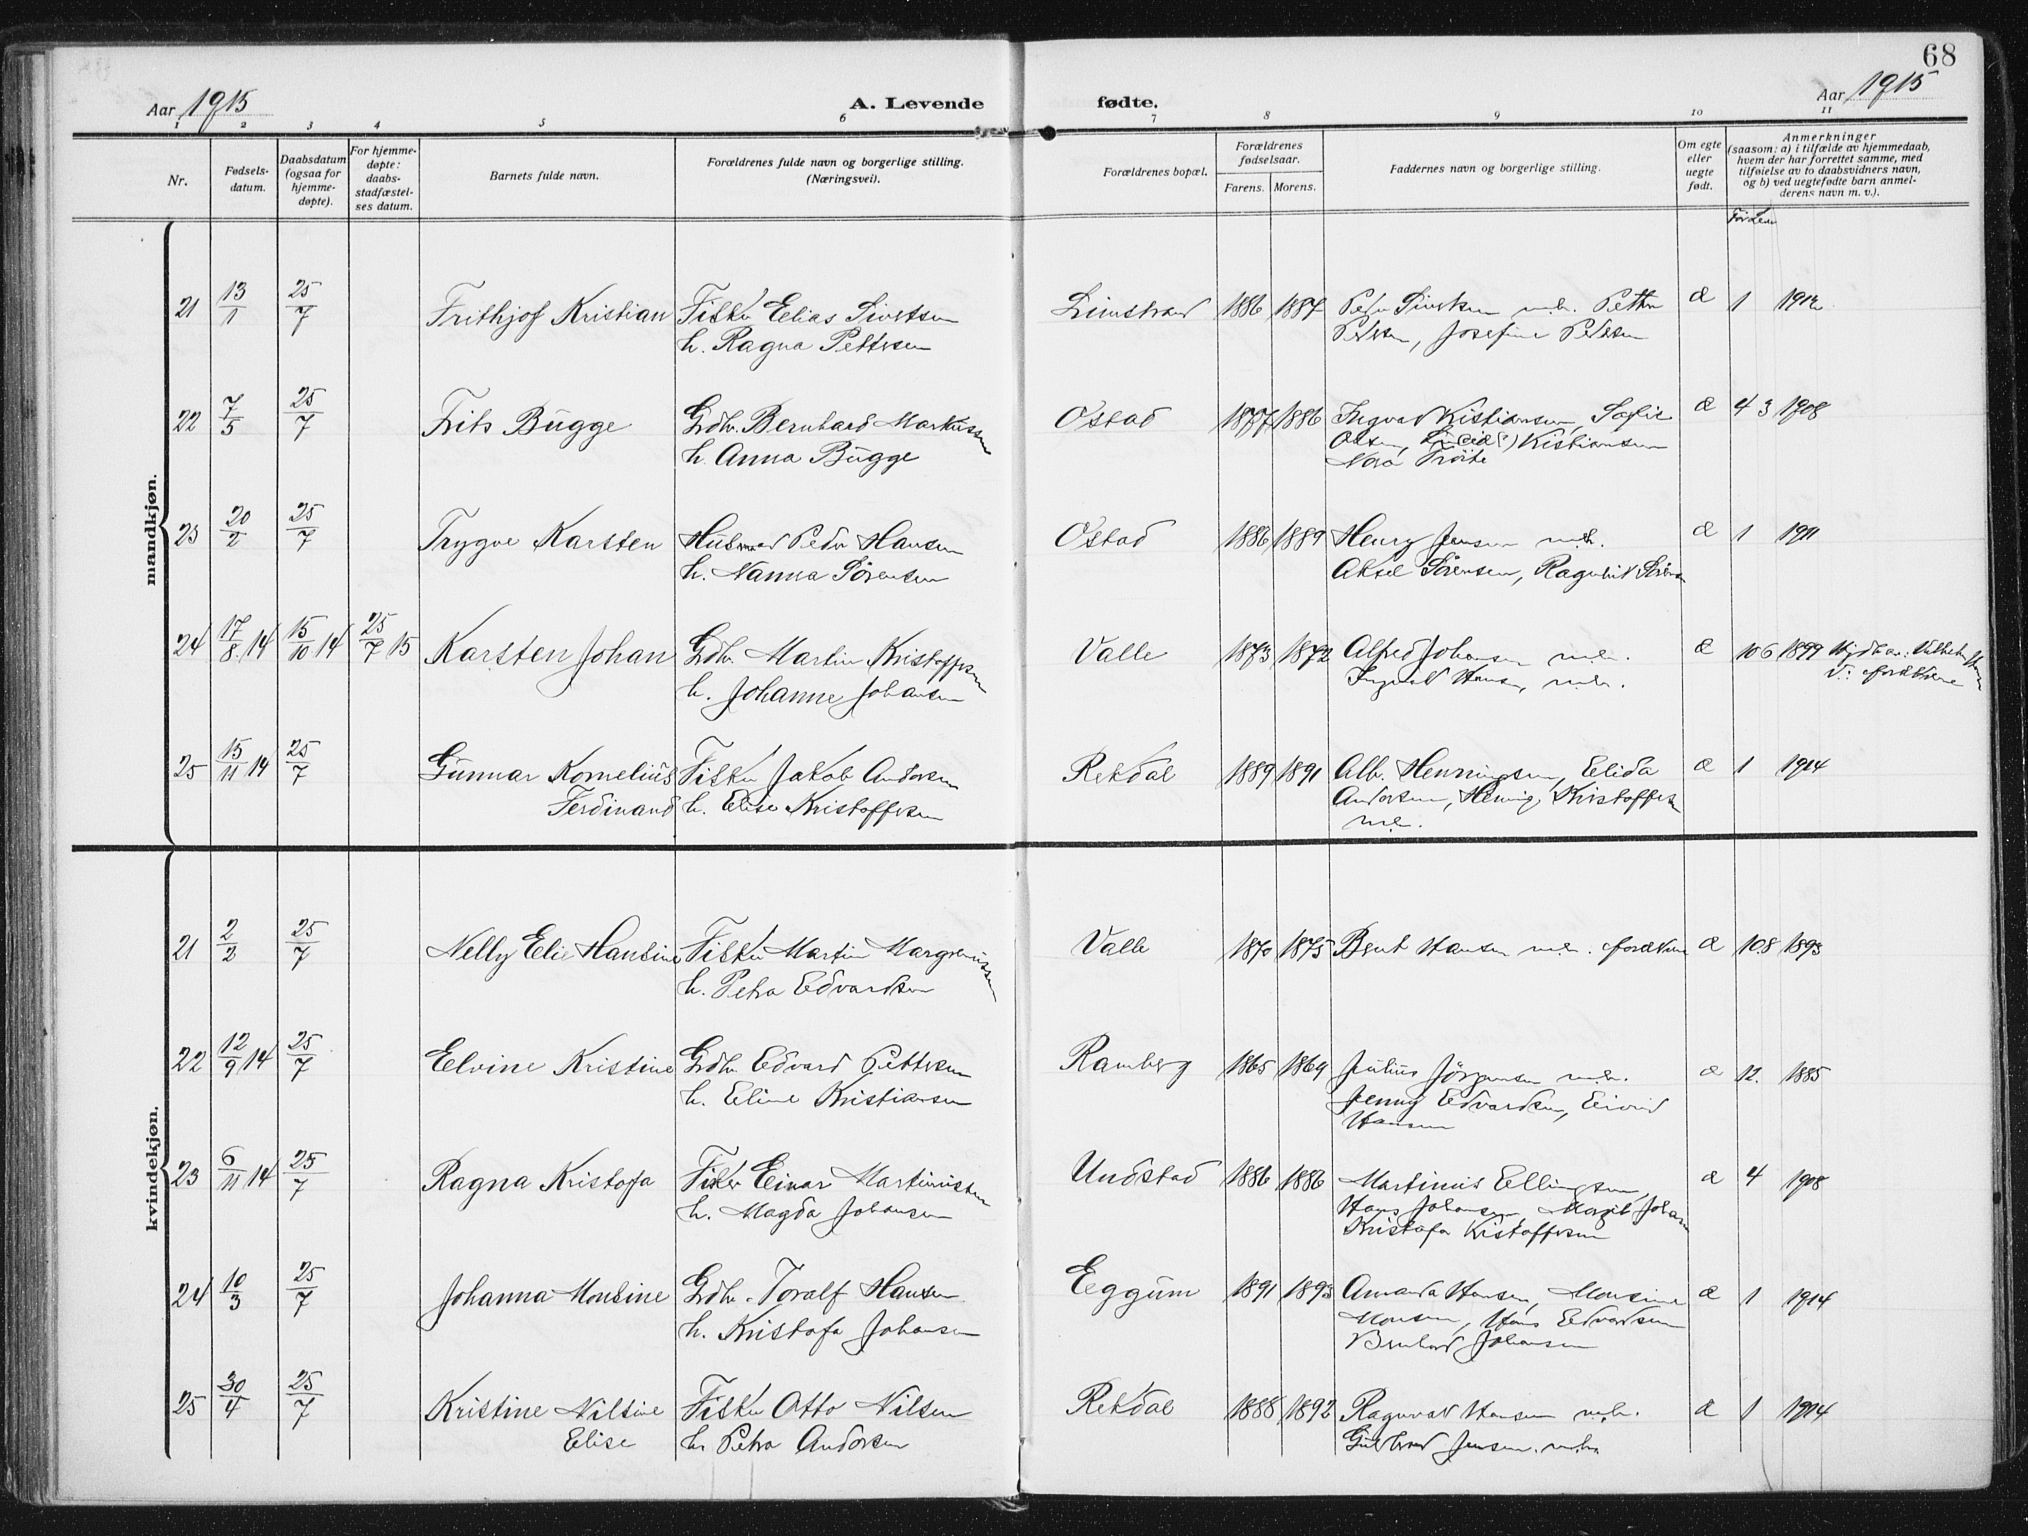 68
Aar 1915 A. Levende fødte. Aar 1915
1 2 3 4 5 6 7 8 9 10 11
Nr.
Fødsels-
datum.
Daabsdatum
(ogsaa for
hjemme-
døpte).
For hjemme-
døpte:
daabs-
stadfæstel-
ses datum.
Barnets fulde navn.
Forældrenes fulde navn og borgerlige stilling.
(Næringsvei).
Forældrenes bopæl.
Forældrenes
fødselsaar.
Farens. Morens.
Faddernes navn og borgerlige stilling.
Om egte
eller
uegte
født.
Anmerkninger
(saasom: a) i tilfælde av hjemmedaab,
hvem der har forrettet samme, med
tilføielse av to daabsvidners navn,
og b) ved uegtefødte barn anmel-
derens navn m. v.).
mandkjøn.
21 13/1 25/7 Frithjof Kristian Fisker Elias Sivertsen Limstrand 1886 1887 Peder Sivertsen m.h. Petter æ 1 1912
h. Ragna Pettersen Pedersen, Josefine Pedersen
22 7/5 25/7 Frits Bugge Grdbr. Bernhard Markussen Ostad 1877 1886 Ingvad Kistiansen, Sofie æ 4 3 1908
h. Anna Bugge Olsen, Kistiansen
Nora
23 20/2 25/7 Trygve Karsten Husmand Peder Hansen Ostad 1886 1889 Henry Jensen m.h. æ 1 1911
h. Nanna Sørensen Aksel Sørensen, Ragnhild Sørensen
24 17/8 14 15/10 14 25/7 15 Karsten Johan Grdbr. Martin Kristoffersen Valle 1873 1872 Alfred Johansen m.h. æ 10 6 1899
h. Johanne Johansen Ingvald Hansen, m.h. V: forældrene
25 15/11 14 25/7 Gunnar Kornelius Fisker Jakob Andersen Rekdal 1889 1891 Alb. Henningsen, Elida æ 1 1914
Ferdinand h. Elise Kristoffersen Andersen, Henrig Kristoffersen
m.h.
kvindekjøn.
21 2/2 25/7 Nelly Elie Hansine Fisker Martin Margrenussen Valle 1870 1875 Bernt Hansen m.h. forældrene æ 10 8 1893
h. Petra Edvardsen
22 12/9 14 25/7 Elvine Kristine Grdbr Edvard Pettersen Ramberg 1865 1869 Julius Jörgensen m.h. æ 12. 1885
h. Eline Kristiansen Jenny Edvardsen, Eivind
Hansen
23 6/11 14 25/7 Ragna Kristofa Fisker Einar Martinussen Undstad 1886 1886 Martinus Ellingsen, æ 4 1908
h. Magda Johansen Hans Johansen, Margit Johansen
Kristofa Kistoffersen
24 10/3 25/7 Johanna Monsine Grdbr. Toralf Hansen Eggum 1891 1893 Amanda Hansen, Monsine æ 1 1914
h. Kristofa Johansen Monsen, Hans Edvardsen
Bernhard Johansen
25 30/4 25/7 Kristine Nilsine Fisker Otto Nilsen Rekdal 1888 1892 Ragnvald Hansen m.h. æ 1 1914
Elise h. Petra Andersen Gulbrand Jensen m.h.